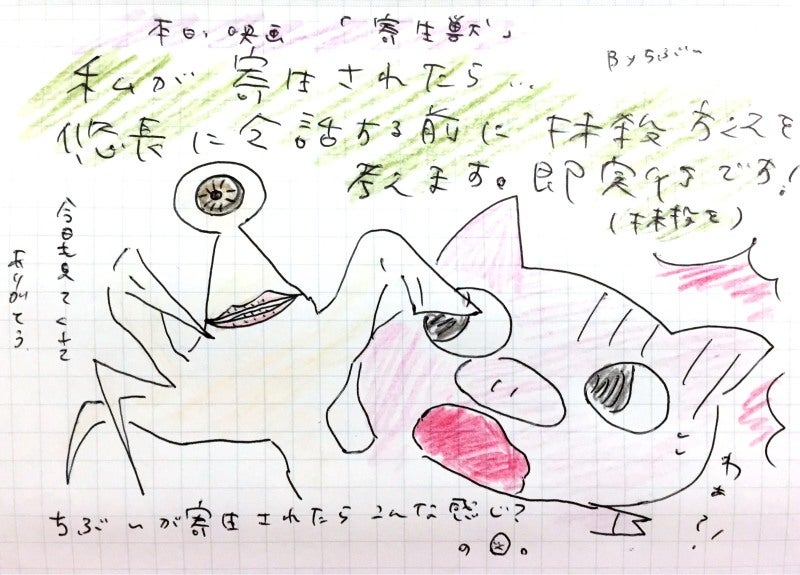 本日、映画「寄生獣」
By ちぶ〜
私が寄生されたら…
悠長に会話する前に抹殺方法を
考えます。即実行です!
(抹殺を)
今日も見てくれて
ありがとう
わぁ?!
ちぶ〜が寄生されたらこんな感じ?
の